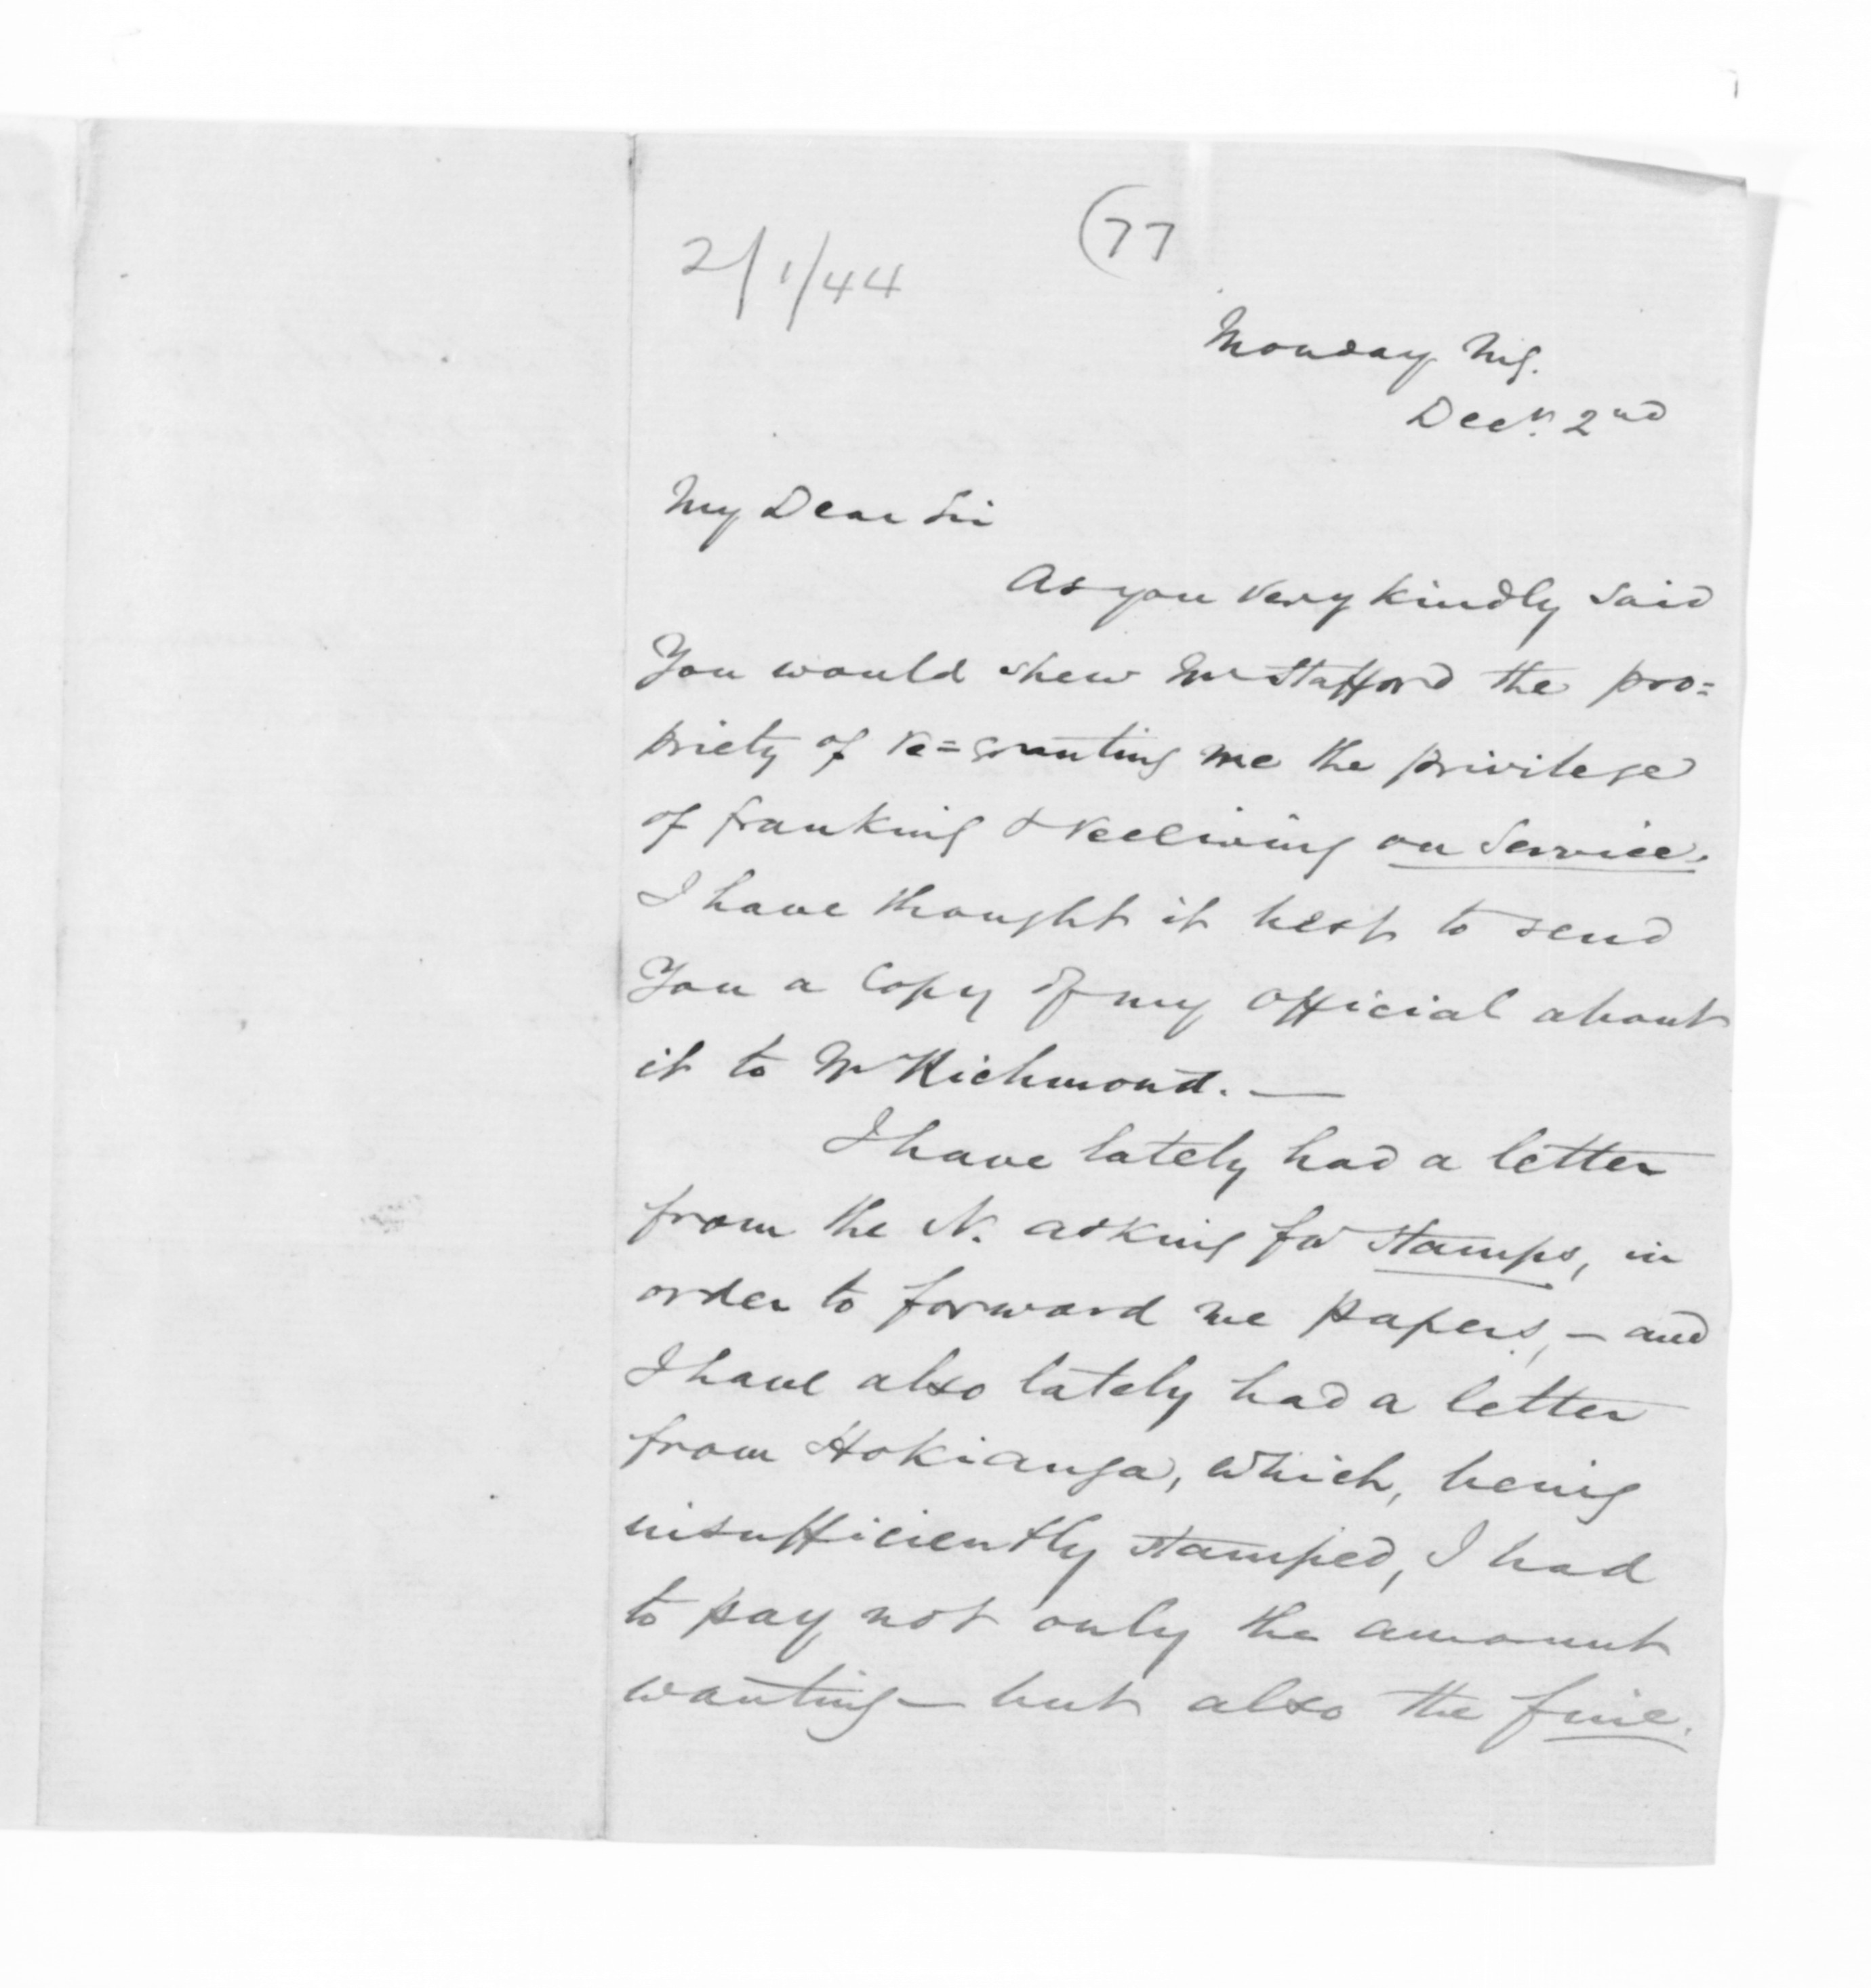 2/1/44
(77
Monday Mg.
Decr. 2nd
My Dear Sir
As you very kindly said
You would shew Mr Stafford the pro=
priety of re=granting me the privilege
of franking & receiving on Service.
I have thought it best to send
You a Copy of my official about
it to Mr Richmond. —
I have lately had a letter
from the N. asking for stamps, in
order to forward me papers, — and
I have also lately had a letter
from Hokianga, which, being
insufficiently stamped, I had
to pay not only the amount
wanting — but also the fine.